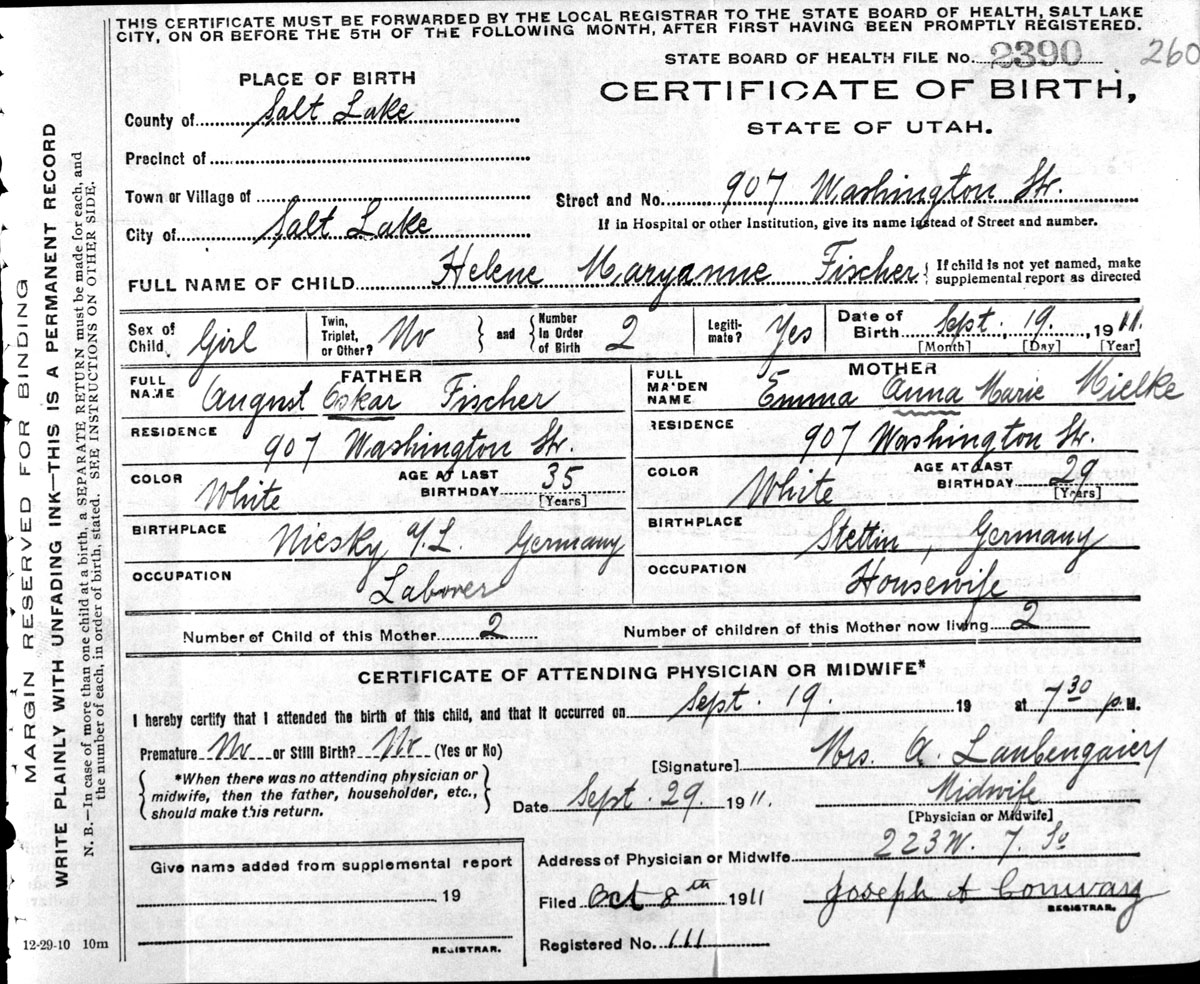 THIS CERTIFICATE MUST BE FORWARDED BY THE LOCAL REGISTRAR TO THE STATE BOARD OF HEALTH, SALT LAKE
CITY, ON OR BEFORE THE 5TH OF THE FOLLOWING MONTH, AFTER FIRST HAVING BEEN PROMPTLY REGISTERED.
STATE BOARD OF HEALTH FILE No. 2390 260
PLACE OF BIRTH
CERTIFICATE OF BIRTH,
STATE OF UTAH.
County of Salt Lake
Precinct of
Town or Village of
Street and No. 907 Washington Str.
City of Salt Lake
If in Hospital or other Institution, give its name instead of Street and number.
FULL NAME OF CHILD Helene Maryanne Fischer { If child is not yet named, make
supplemental report as directed
Sex of Child Girl
Twin, Triplet, or Other? No } and { Number In Order of Birth 2
Legiti-mate? Yes
Date of Birth Sept. 19. 1911.
[Month] [Day] [Year]
FATHER
FULL NAME August Oskar Fischer
RESIDENCE 907 Washington Str.
COLOR White AGE AT LAST BIRTHDAY 35 [Years]
BIRTHPLACE Niesky a/L. Germany
OCCUPATION Laborer
MOTHER
FULL MAIDEN NAME Emma Anna Marie Mielke
RESIDENCE 907 Washington Str.
COLOR White AGE AT LAST BIRTHDAY 29 [Years]
BIRTHPLACE Stettin, Germany
OCCUPATION Housewife
Number of Child of this Mother 2 Number of children of this Mother now living 2
CERTIFICATE OF ATTENDING PHYSICIAN OR MIDWIFE*
I hereby certify that I attended the birth of this child, and that it occurred on Sept. 19. 19 at 7 30 p. M.
Premature No or Still Birth? No (Yes or No)
[Signature] Mrs. A.
{ *When there was no attending physician or
midwife, then the father, householder, etc.,
should make this return. }
Date Sept. 29. 1911. Midwife
[Physician or Midwife]
Address of Physician or Midwife 223 W. 7. So
Filed Oct 8th 1911 Joseph A Conway
REGISTRAR.
Registered No. 111
Give name added from supplemental report
19
REGISTRAR.
12-29-10 10m
MARGIN RESERVED FOR BINDING
WRITE PLAINLY WITH UNFADING INK—THIS IS A PERMANENT RECORD
N. B.—In case of more than one child at a birth, a SEPARATE RETURN must be made for each, and
the number of each, in order of birth, stated. SEE INSTRUCTIONS ON OTHER SIDE.